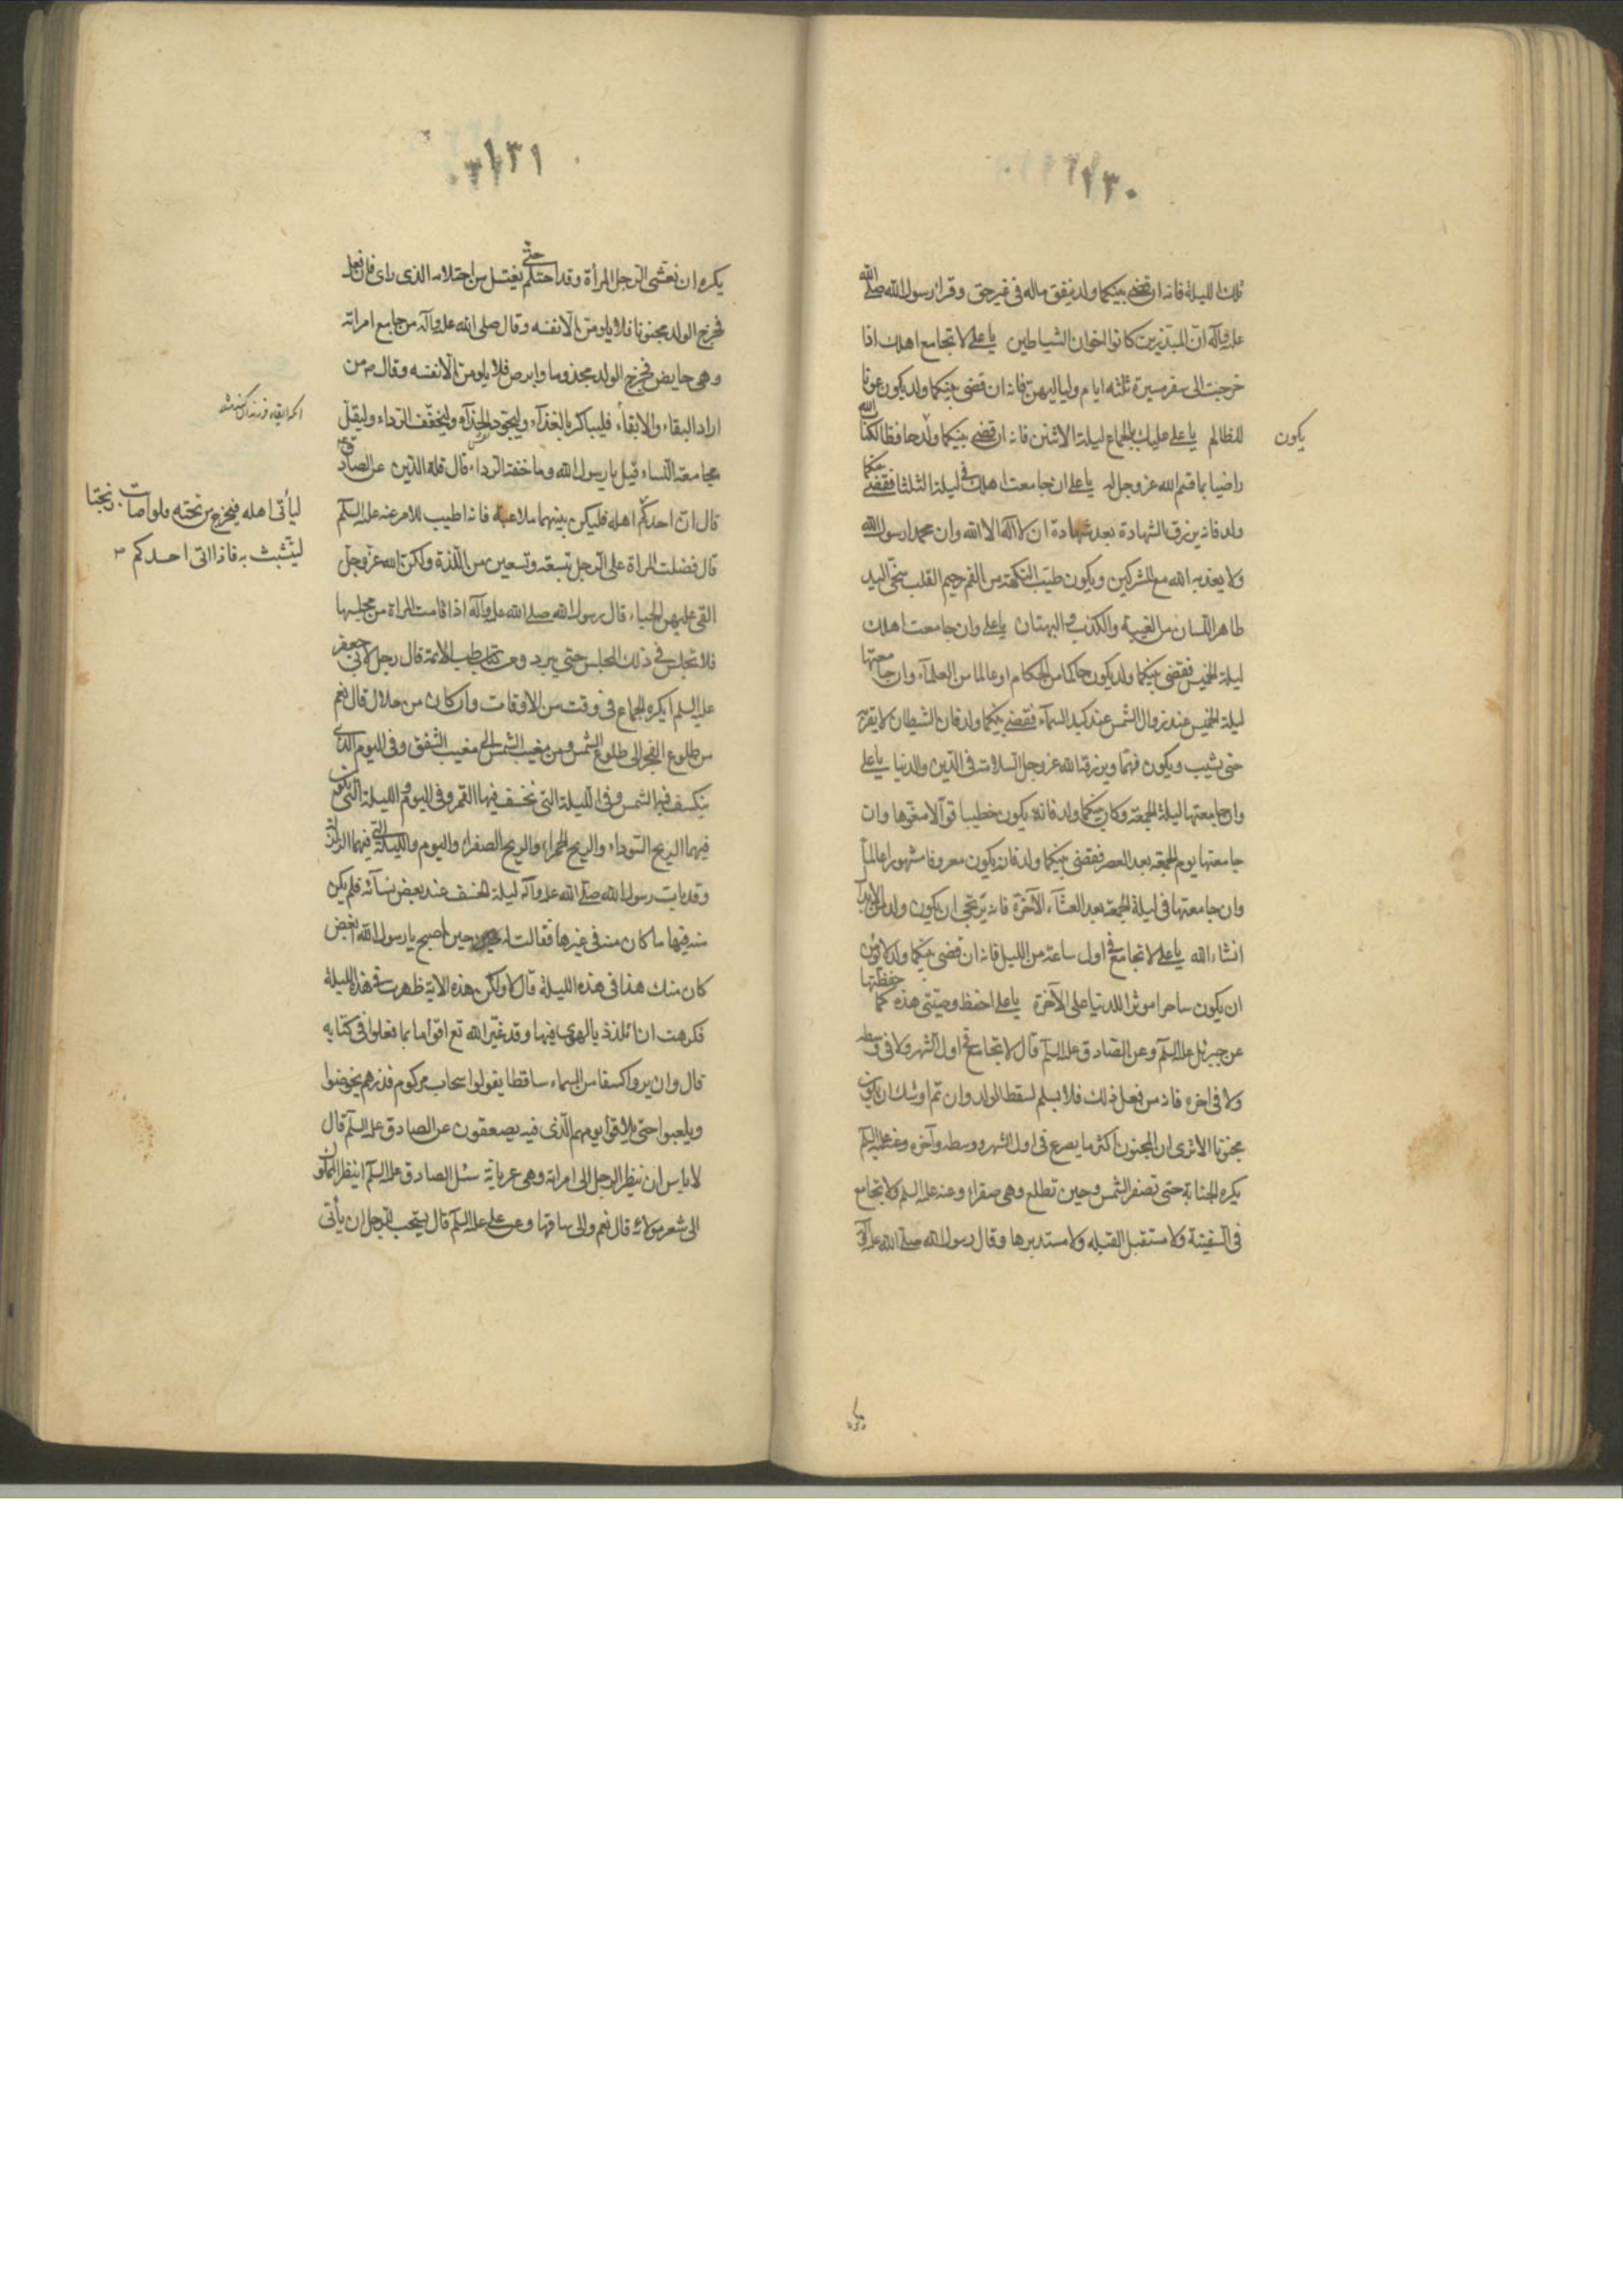 ١٣٠
تلك الليلة فانه ان قضى بينكما ولد ينفق ماله فى غير حق وقرا رسول الله صلى الله
عليه وآله ان المبذرين كانوا اخوان الشياطين يا على لا تجامع اهلك اذا
خرجت الى سفر مسيرة ثلثه ايام ولياليهن فانه ان قضى بينكما ولد يكون عونا
للظالم يا على عليك بالجماع ليلة الاثنين فانه ان قضى بينكما ولد حافظا لكتاب الله
يكون
راضيا بما قسم الله عز وجل له يا على ان جامعت اهلك فى ليلة الثلثا فقضى بينكما
ولد فانه يرزق الشهادة بعد شهادة ان لا اله الا الله وان محمدا رسول الله
ولا يعذبه الله مع المشركين ويكون طيب النكهة من الفم رحيم القلب سخى اليد
طاهر اللسان من الغيبة والكذب والبهتان يا على وان جامعت اهلك
ليلة الخميس فقضى بينكما ولد يكون حاكما من الحكام او عالما من العلماء وان جامعتها
ليلة الخميس عند زوال الشمس عند كبد السماء فقضى بينكما ولد فان الشيطان لا يقربه
حتى يشيب ويكون فهما ويرزقه الله عز وجل السلامة فى الدين والدنيا يا على
وان جامعتها ليلة الجمعة وكان بينكما ولد فانه يكون خطيبا قوالا مفوها وان
جامعتها يوم الجمعة بعد العصر فقضى بينكما ولد فانه يكون معروفا مشهورا عالما
وان جامعتها فى ليلة الجمعة بعد العشاء الآخرة فانه يرتجى ان يكون ولد من الابدال
انشاء الله يا على لا تجامع فى اول ساعة من الليل فانه ان قضى بينكما ولد لا يؤمن
ان يكون ساحرا موثرا للدنيا على الآخرة يا على احفظ وصيتى هذه كما حفظتها
عن جبرئيل عليه السلم وعن الصادق عليه السلم قال لا تجامع فى اول الشهر ولا فى وسطه
ولا فى اخره فانه من فعل ذلك فلا يسلم لسقط الولد وان تم اوشك ان يكون
مجنونا الا ترى ان المجنون اكثر ما يصرع فى اول الشهر ووسطه وآخره وعنه عليه السلم
يكره الجنابة حتى تصفر الشمس وحين تطلع وهى صفراء وعنه عليه السلم لا تجامع
فى السفينة ولا مستقبل القبله ولا مستدبرها وقال رسول الله صلى الله عليه وآله
١٣١
يكره ان يغشى الرجل المرأة وقد احتلم حتى يغتسل من احتلامه الذى راى فان فعل
فخرج الولد مجنونا فلا يلومن الا نفسه وقال صلى الله عليه وآله من جامع امراته
وهى حايض فخرج الولد مجذوما وابرص فلا يلومن الا نفسه وقال ص من
اراد البقاء والابقاء فليباكر بالغذاء وليجود الحذاء وليخفف الرداء وليقل
مجامعة النساء قيل يا رسول الله وما خفة الرداء قال قلة الدين عن الصادق ع
قال ان احدكم
ليأتى اهله فيخرج من تحته فلو اصابت زنجيا
لتشبث به فاذا اتى احدكم
اهله فليكن بينهما ملاعبة فانه اطيب للامر عنه عليه السلم
قال فضلت المراة على الرجل بتسعة وتسعين من اللذة ولكن الله عز وجل
القى عليهن الحياء قال رسول الله صلى الله عليه وآله اذا قامت المراة من مجلسها
فلا تجلس فى ذلك المجلس حتى يبرد ومن كتاب طب الائمة قال رجل لابى جعفر
عليه السلم ايكره الجماع فى وقت من الاوقات وان كان من حلال قال نعم
من طلوع الفجر الى طلوع الشمس ومن مغيب الشمس الى مغيب الشفق وفى اليوم الذى
ينكسف فيه الشمس وفى الليلة التى تخسف فيها القمر وفى اليوم والليلة التى يكون
فيهما الريح السوداء والريح الحمراء والريح الصفراء واليوم والليلة التى فيهما الزلزلة
وقد بات رسول الله صلى الله عليه وآله ليلة الخسف عند بعض نسائه فلم يكن
منه فيها ما كان منه فى غيرها فقالت له حين اصبح يا رسول الله ابغض
كان منك هذا فى هذه الليلة قال لا ولكن هذه الاية ظهرت فى هذه الليلة
فكرهت ان اتلذذ بالهوى فيها وقد عير الله تع اقواما بما فعلوا فى كتابه
قال وان يروا كسفا من السماء ساقطا يقولوا سحاب مركوم فذرهم يخوضوا
ويلعبوا حتى يلاقوا يومهم الذى فيه يصعقون عن الصادق عليه السلم قال
لا باس ان ينظر الرجل الى امراته وهى عريانة سئل الصادق عليه السلم اينظر المملوك
الى شعر مولاته قال نعم والى ساقها وعن على عليه السلم قال يستحب للرجل ان يأتى